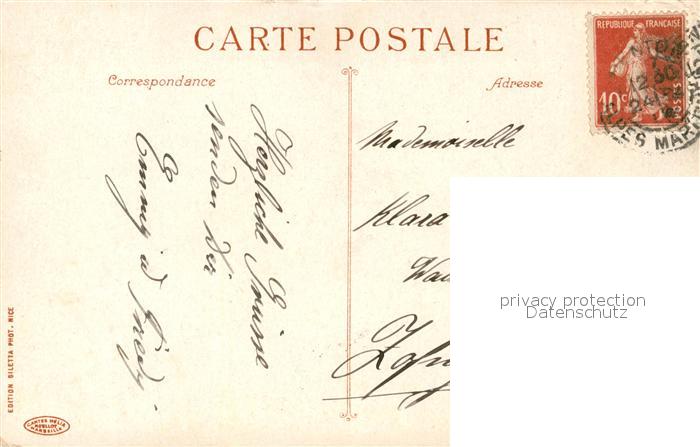 CARTE POSTALE
Correspondance
Adresse
REPUBLIQUE FRANÇAISE
10c
POSTES
12 30
24
ALPES MAR
Herzliche Grüsse
senden Dir
Emmy &
Mademoiselle
Klara
privacy protection
Datenschutz
EDITION GILETTA PHOT. NICE
CARTES HELIA
MOULLOT
MARSEILLE